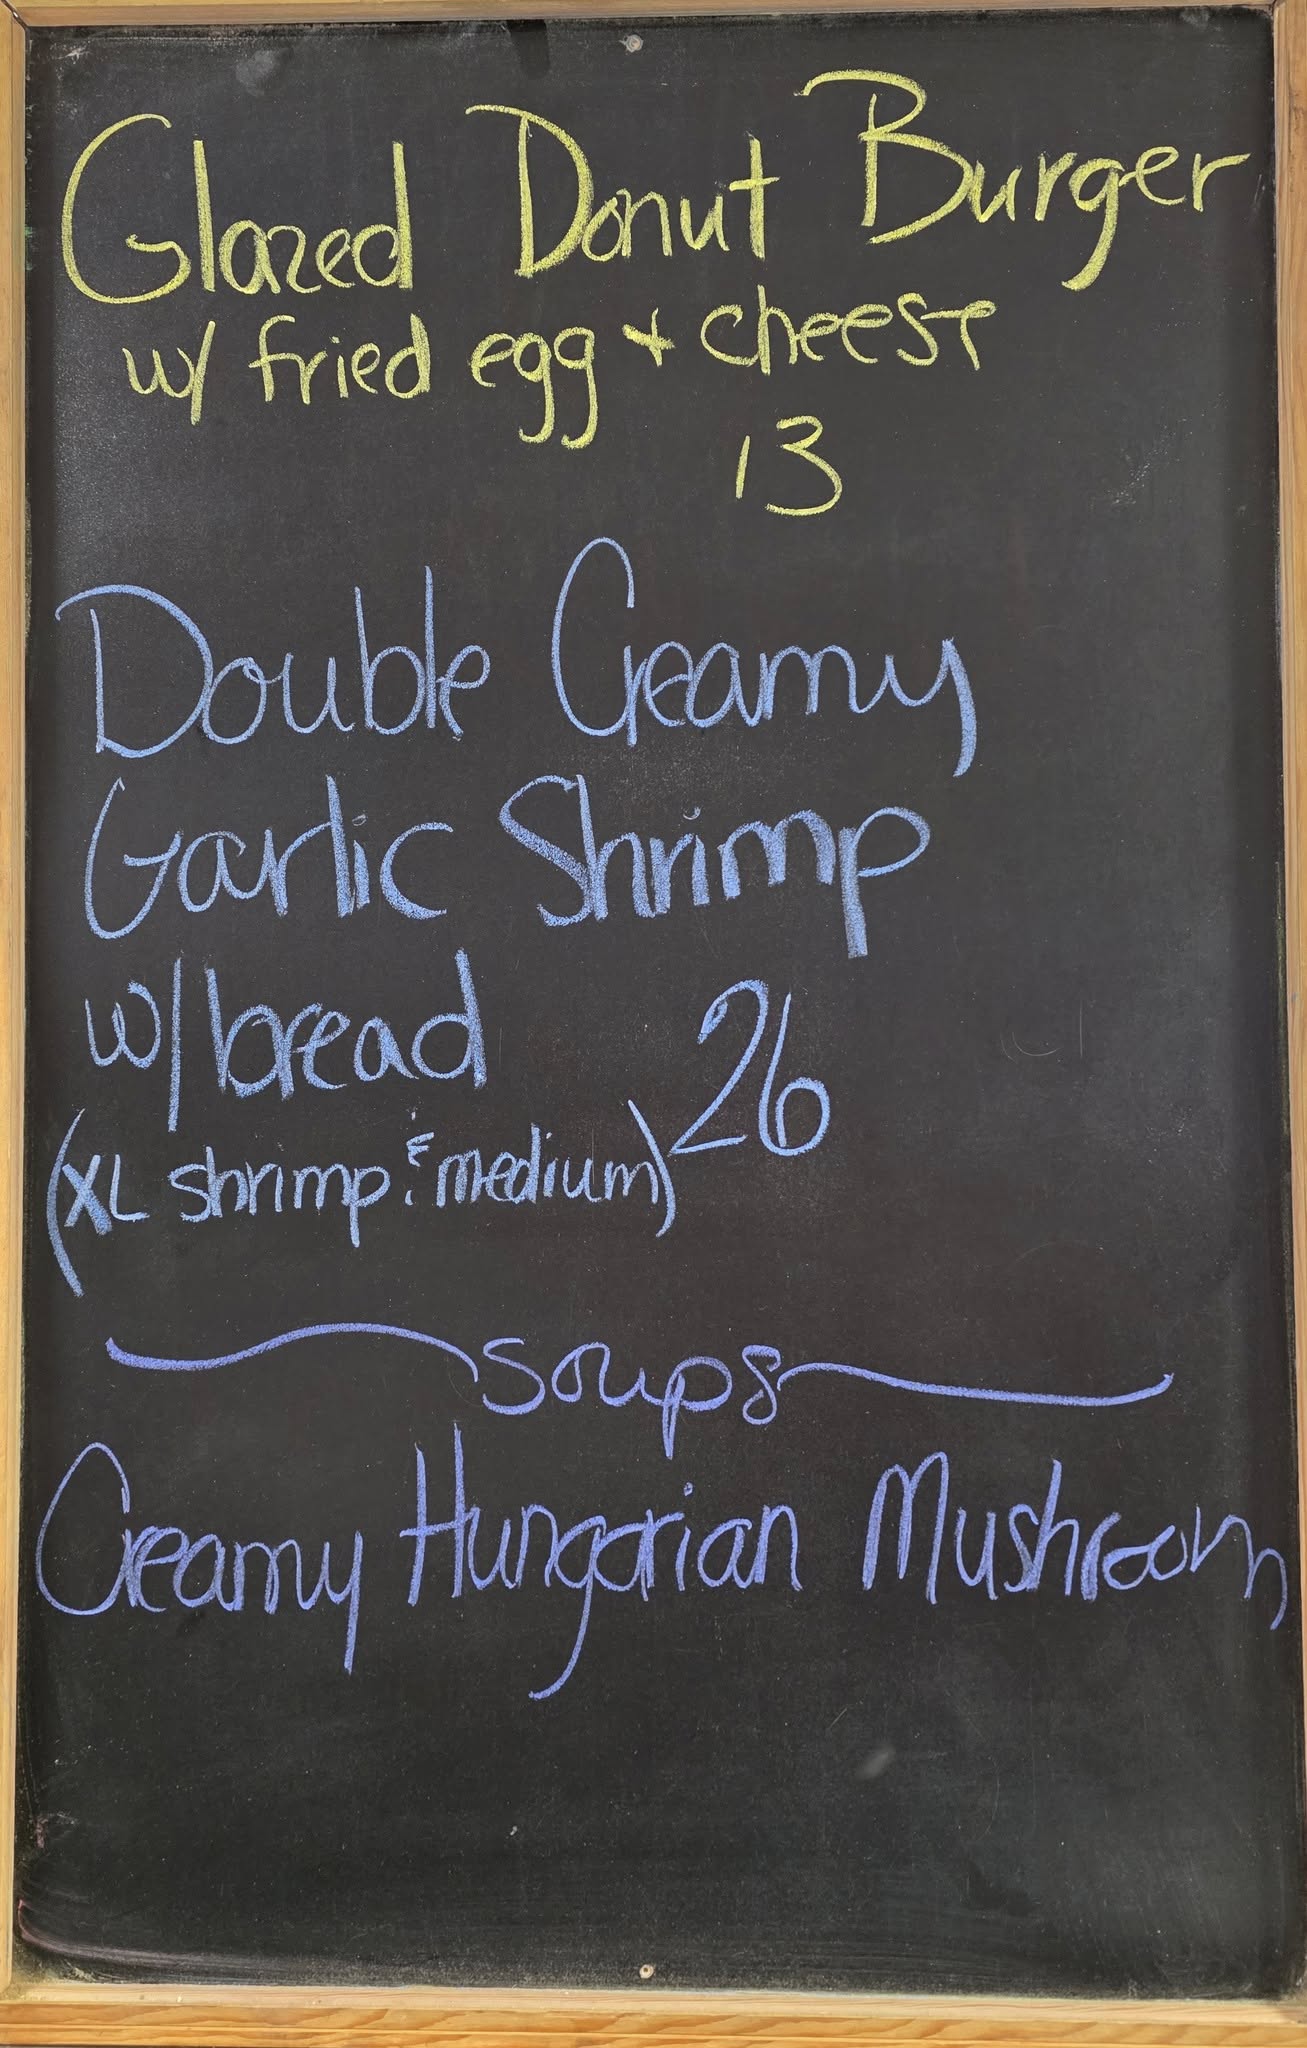 Glazed Donut Burger
w/ fried egg + cheese
13
Double Creamy
Garlic Shrimp
w/ bread 26
(XL shrimp & medium)
soups
Creamy Hungarian Mushroom